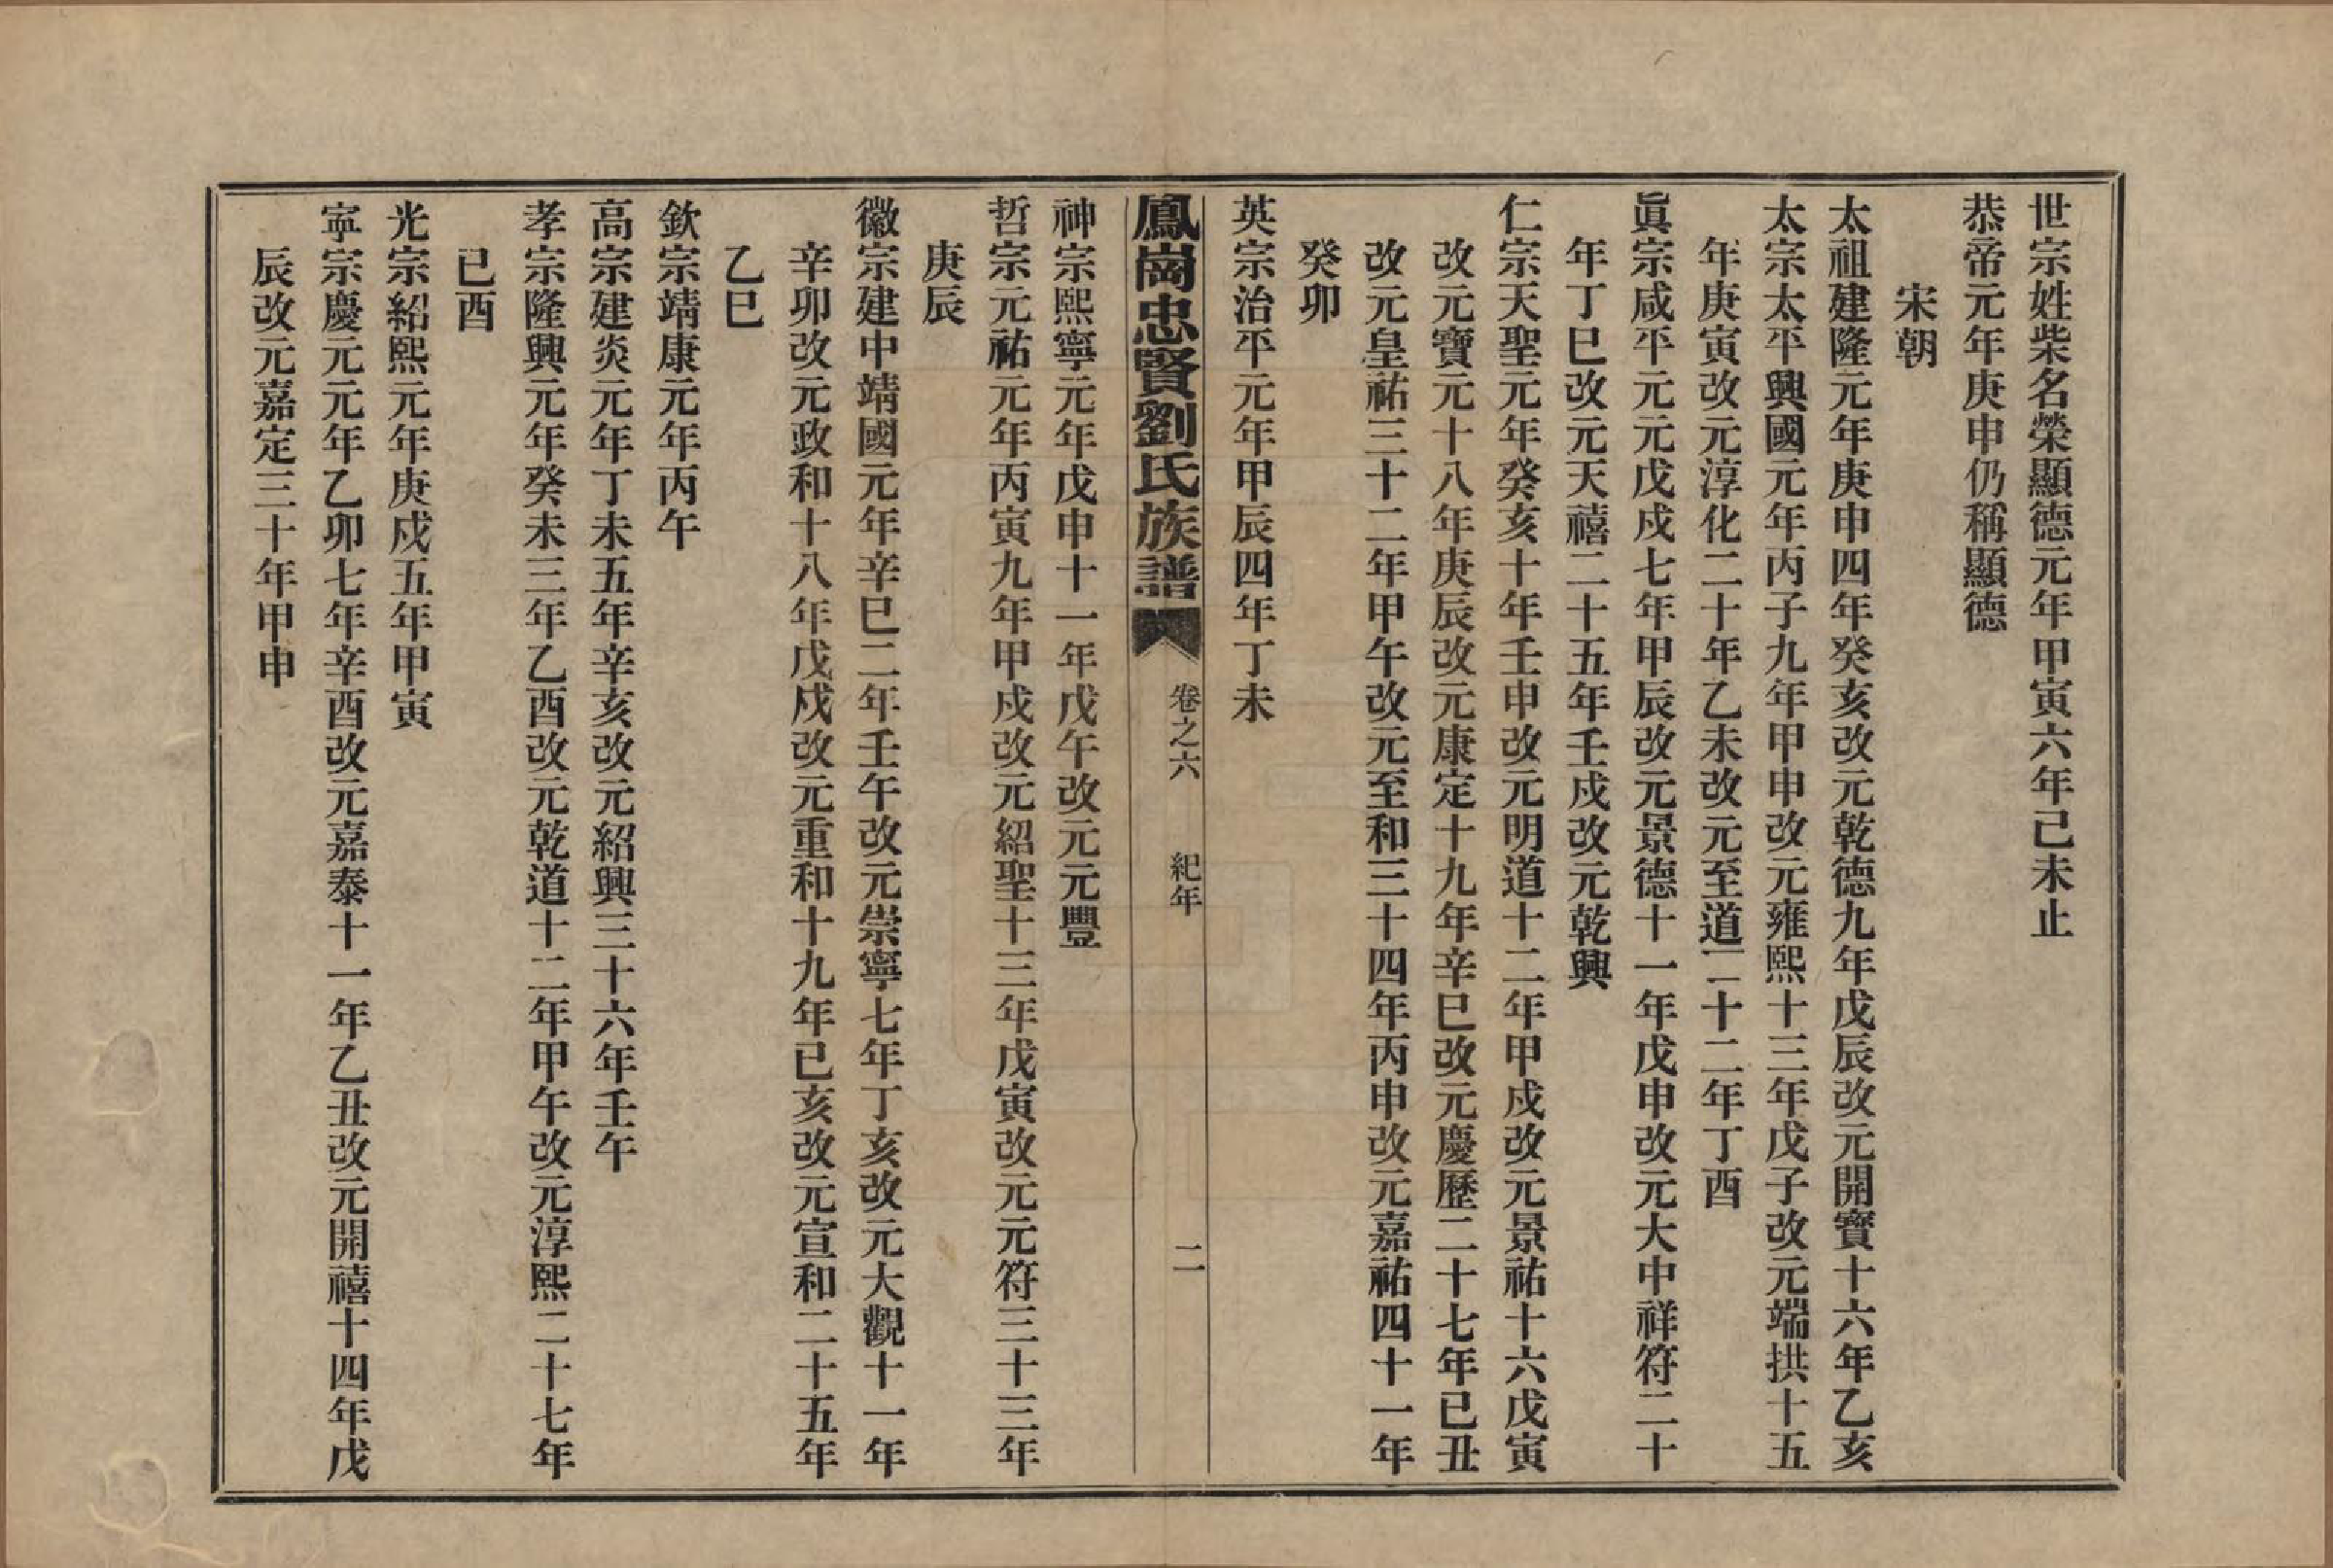 世宗姓柴名榮顯德元年甲寅六年己未止
恭帝元年庚申仍稱顯德
宋朝
太祖建隆元年庚申四年癸亥改元乾德九年戊辰改元開寶十六年乙亥
太宗太平興國元年丙子九年甲申改元雍熙十三年戊子改元端拱十五
年庚寅改元淳化二十年乙未改元至道二十二年丁酉
眞宗咸平元元戊戍七年甲辰改元景德十一年戊申改元大中祥符二十
年丁巳改元天禧二十五年壬戍改元乾興
仁宗天聖元年癸亥十年壬申改元明道十二年甲戍改元景祐十六戊寅
改元寶元十八年庚辰改元康定十九年辛巳改元慶歷二十七年已丑
改元皇祐三十二年甲午改元至和三十四年丙申改元嘉祐四十一年
癸卯
英宗治平元年甲辰四年丁未
鳳崗忠賢劉氏族譜 卷之六 紀年 二
神宗熙寧元年戊申十一年戊午改元元豐
哲宗元祐元年丙寅九年甲戍改元紹聖十三年戊寅改元元符三十三年
庚辰
徽宗建中靖國元年辛巳二年壬午改元崇寧七年丁亥改元大觀十一年
辛卯改元政和十八年戊戍改元重和十九年已亥改元宣和二十五年
乙巳
欽宗靖康元年丙午
高宗建炎元年丁未五年辛亥改元紹興三十六年壬午
孝宗隆興元年癸未三年乙酉改元乾道十二年甲午改元淳熙二十七年
已酉
光宗紹熙元年庚戍五年甲寅
寧宗慶元元年乙卯七年辛酉改元嘉泰十一年乙丑改元開禧十四年戊
辰改元嘉定三十年甲申